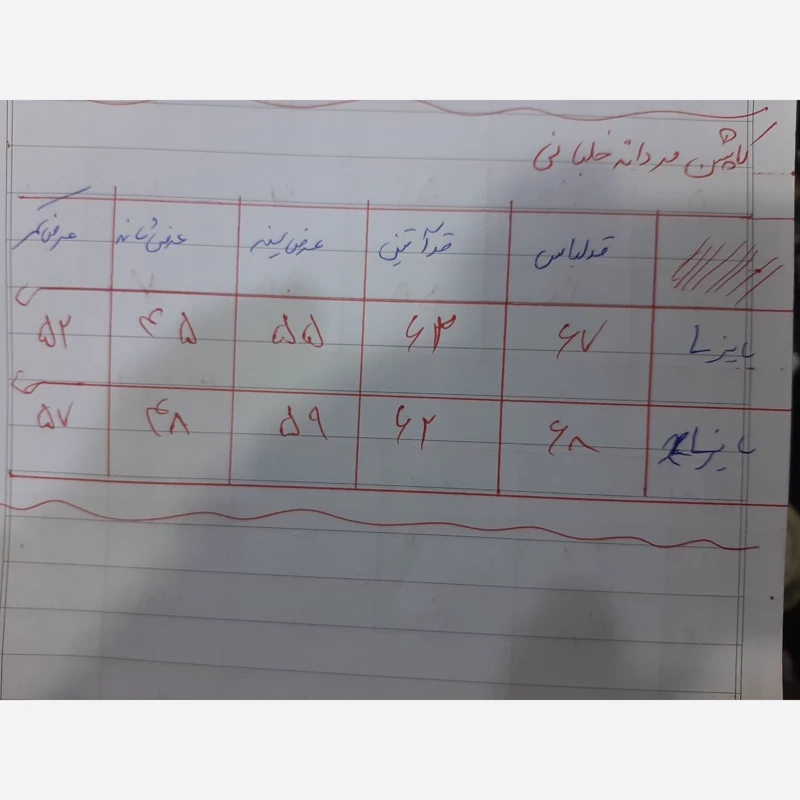 کاپشن مردانه خلبانی
قد لباس قد آستین عرض سینه عرض شانه عرض کمر
سایز L ۶۷ ۶۳ ۵۵ ۴۵ ۵۲
سایز ۶۸ ۶۲ ۵۹ ۴۸ ۵۷